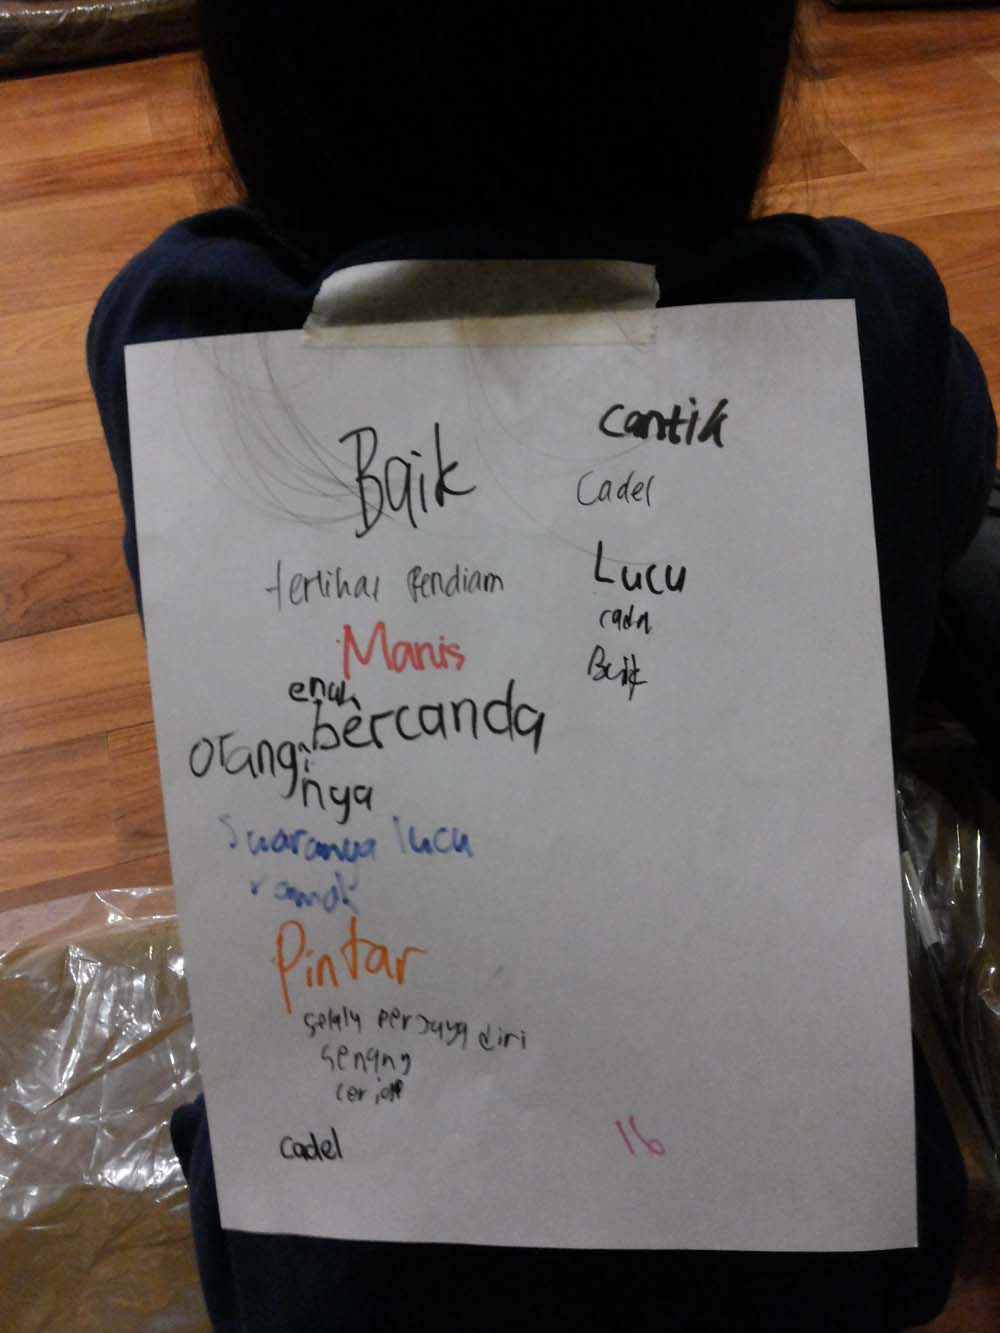 Baik
terlihat Pendiam
Manis
enak
bercanda
orang
nya
Suaranya lucu
ramah
Pintar
selalu percaya diri
senang
ceria
cadel
cantik
Cadel
Lucu
rada
Baik
16